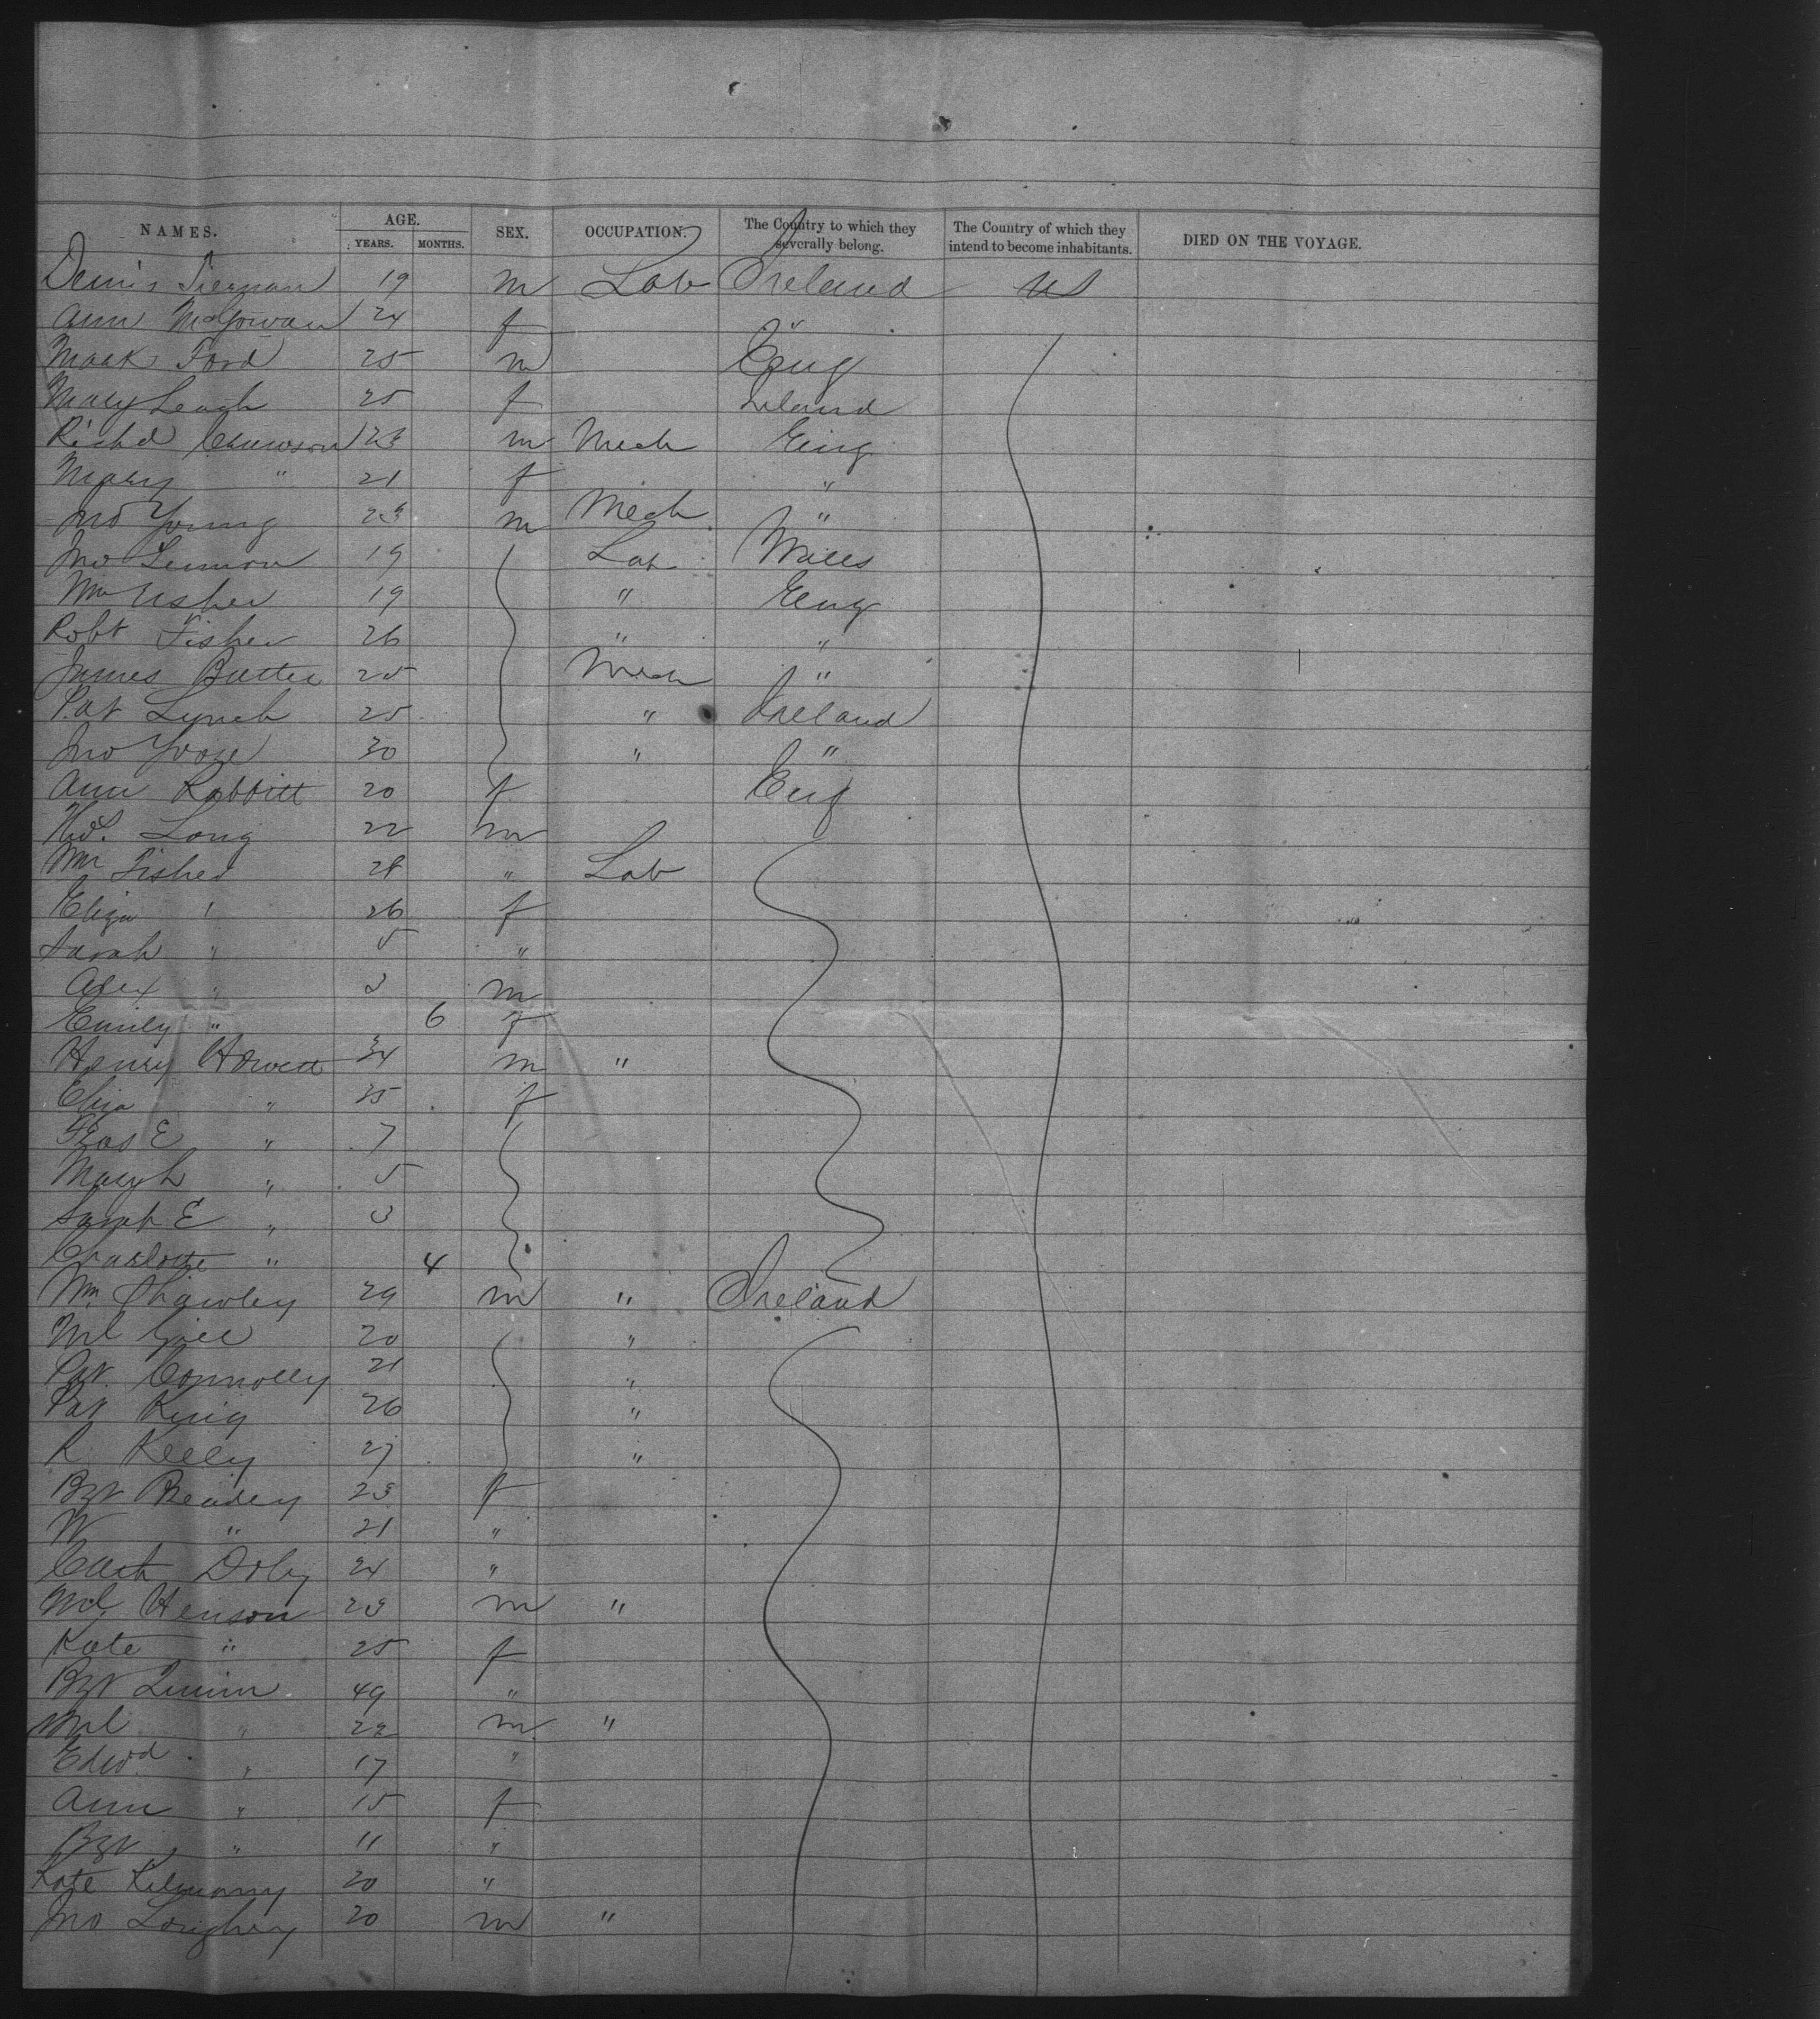 NAMES. AGE. YEARS. MONTHS. SEX. OCCUPATION. The Country to which they severally belong. The Country of which they intend to become inhabitants. DIED ON THE VOYAGE.
Denis Tiernan 19 m Lab Ireland US
Ann McGowan 24 f "
Mark Ford 25 m Eng
Mary Leach 25 f Ireland
Richd 23 m Mech Eng
Mary " 21 f "
Jno Young 23 m Mech "
Jno Lennon 19 Lab Wales
Wm Usher 19 " Eng
Robt Fisher 26 " "
James Butter 25 Mech "
Pat Lynch 25 " Ireland
Jno 30 " "
Ann Rabbitt 20 f Eng
Long 22 m
Wm Fisher 28 " Lab
Eliza " 26 f
Sarah " 5 "
Alex " 3 m
Emily " 6 f
Henry Howett 34 m "
Eliza " 35 f
Thos E " 7
Mary h " 5
Sarah E " 3
Charlotte " 4
Wm Thawley 29 m " Ireland
Ml Gill 20 "
Pat Connolly 21 "
Pat King 26 "
R Kelly 27 "
Bgt Breadey 23 f
W " 21 "
Cath Doly 24 "
Ml Henson 23 m "
Kate " 25 f
Bgt Quinn 49 "
Ml " 22 m "
Edwd " 17 "
Ann " 15 f
Bgt " 11 "
Kate Kilmanny 20 "
Jno Loughry 20 m "